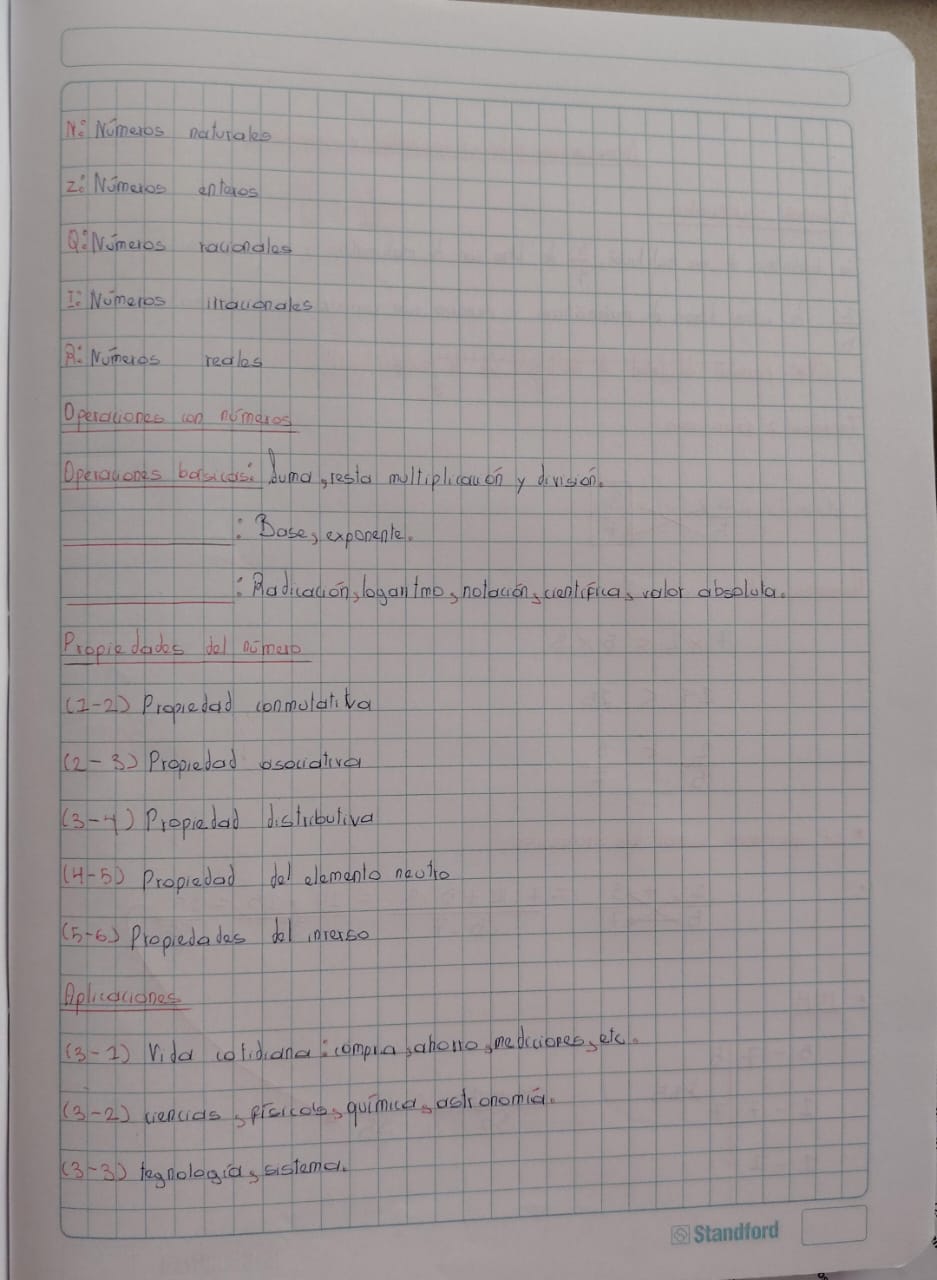 N: Números naturales
Z: Números enteros
Q: Números racionales
I: Números irracionales
R: Números reales
Operaciones con números
Operaciones basicas: Suma, resta multiplicación y división.
: Base, exponente.
: Radicación, logaritmo, notación, científica, valor absoluta.
Propiedades del número
(1-2) Propiedad conmutativa
(2-3) Propiedad asociativa
(3-4) Propiedad distributiva
(4-5) Propiedad del elemento neutro
(5-6) Propiedades del inverso
Aplicaciones
(3-1) Vida cotidiana: compra, ahorro, mediciones, etc.
(3-2) ciencias, físicas, química, astronomía.
(3-3) tegnología, sistema.
Standford